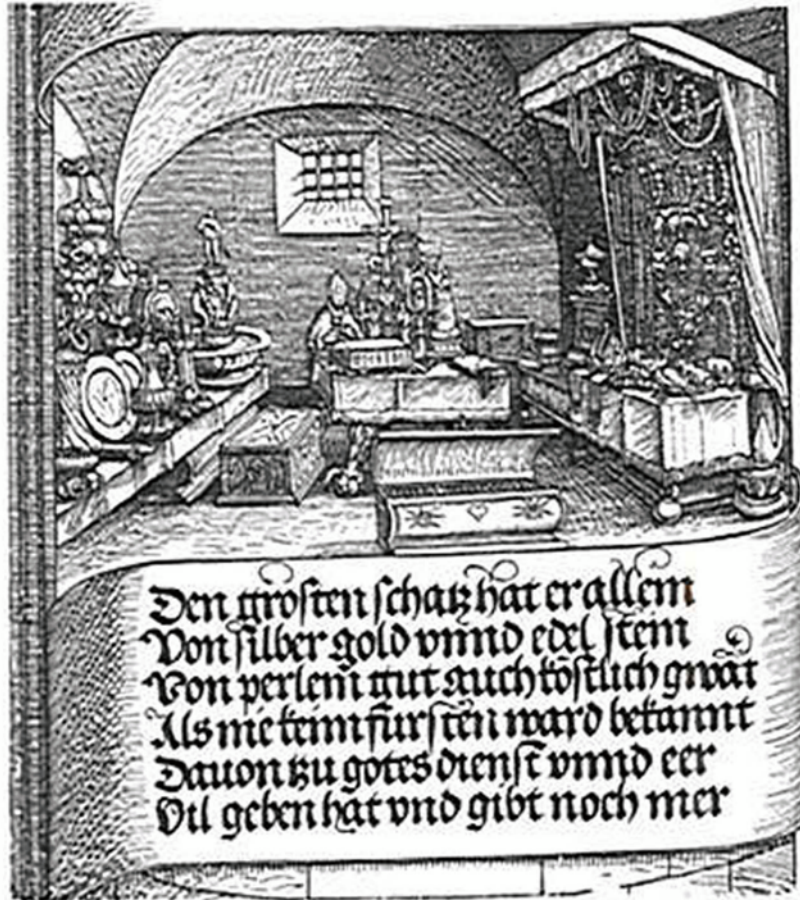 Den grosten schatz hat er allein
Von silber gold vnnd edel stein
Von perlein gut auchköstlich gwät
Als nie keim fursten ward bekannt
Dauon zu gotes dienst vnnd eer
Vil geben hat vnd gibt noch mer